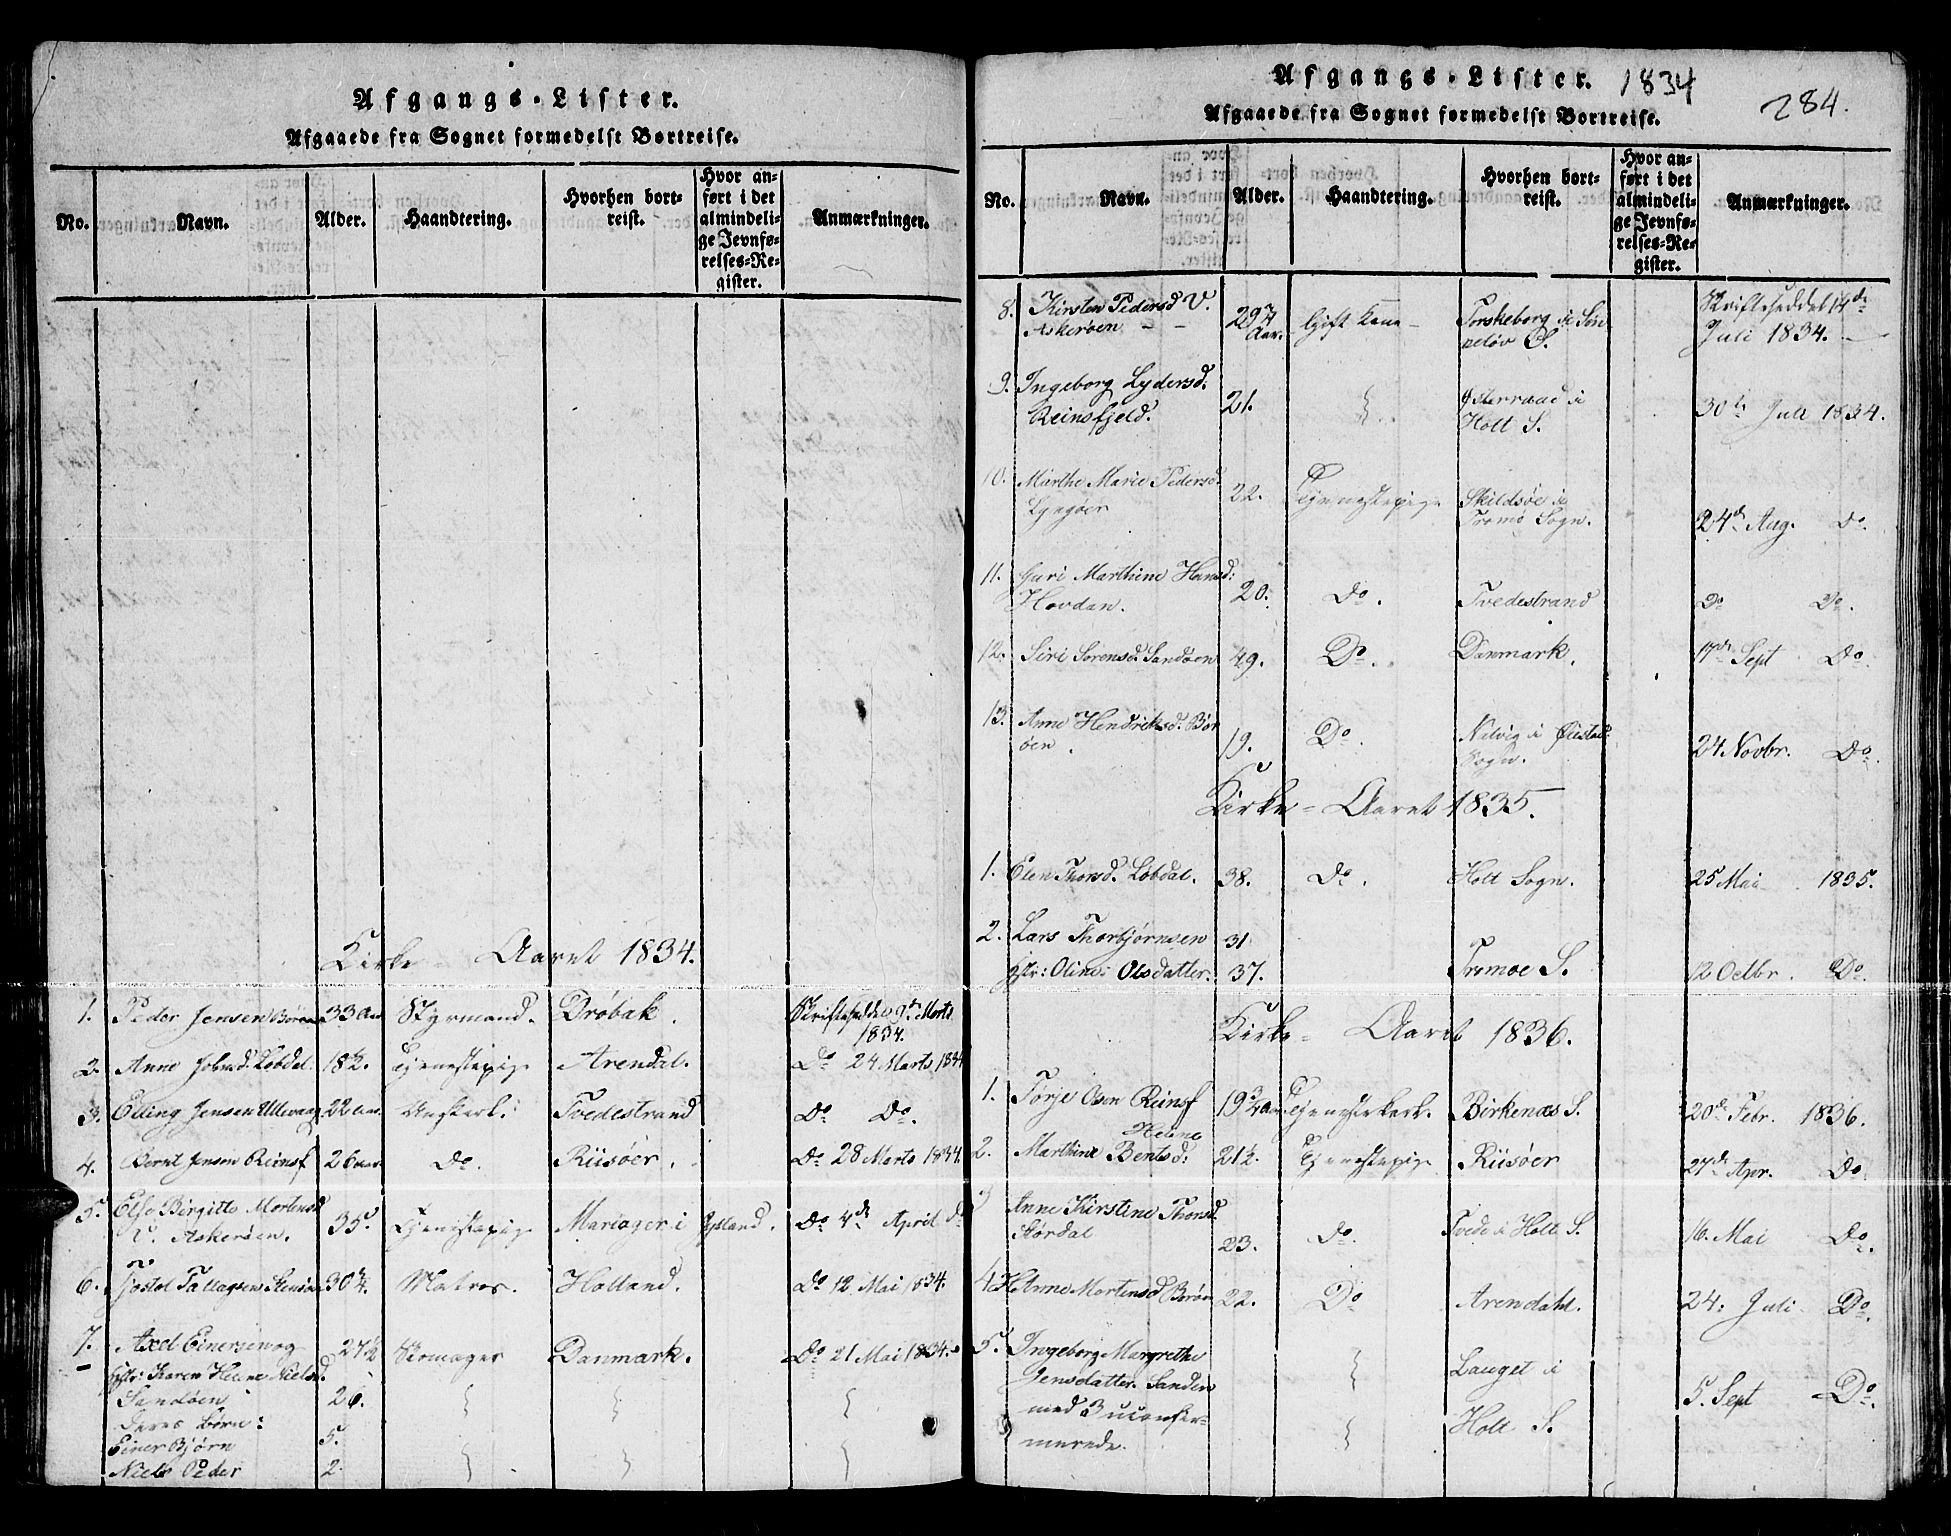 Afgangs-Lister.
Afgaaede fra Sognet formedelst Bortreise.
No. Navn. Alder. Haandtering. Hvorhen bortreist. Hvor anført i det almindelige Jevnførelses-Register. Anmærkninger.
Kirke - Aaret 1834.
1. Peder Jensen Børøen 33 Aar Styrmand. Drøbak. Skriftseddel 9de Marts
1834.
2. Anne Johnsd. Løbdal. 18½. Tjenestepige Arendal. Do 24 Marts 1834
3. Elling Jensen Ullevaag 22 aar Tvedestrand Do Do.
4. Bernt Jensen Reinsf 26 aar Do. Riisøer. Do 28 Marts 1834.
5. Else Birgitte Mortensd
V. Askerøen. 35. Tjenestepige Mariager i Jylland. Do 4de April Do
6. Tallagsen Stensøen 30¼. Matros. Holland. Do 12 Mai 1834.
7. Axel Einersen og 27½ Skomager Danmark. Do 21 Mai 1834.
Hstr: Karen Helene Nielsd.
Sandøen 26.
Deres Børn:
Einer Bjørn 5.
Niels Peder 2.
Afgangs-Lister. 1834
284.
Afgaaede fra Sognet formedelst Bortreise.
No. Navn. Alder. Haandtering. Hvorhen bortreist. Hvor anført i det almindelige Jevnførelses-Register. Anmærkninger.
8. Kirsten Pedersd V. 29¾ Gift Kone - Torskeborg i Søn Skriftseddel 14de
Askerøen - - Aar. deløv S. Juli 1834.
9. Ingeborg Lydersd. 21. Østeraad i 30te Juli 1834.
Reinsfjeld. Holt S.
10. Marthe Marie Pedersd. 22. Tjenestepige Skildsøe i
Lyngøer Tromø Sogn. 24de Aug. Do.
11. Guri Marthine Hansd:
Hovdan. 20. Do. Tvedestrand Do Do.
12. Siri Sørensd. Sandøen 49. Do. Danmark. 17de Sept Do.
13. Anne Hendriksd: Bør
øen. 19. Do. Nelvig i Øiestad
Sogn. 24 Novbr. Do.
Kirke - Aaret 1835.
1. Elen Thorsd. Løbdal. 38. Do. Holt Sogn. 25 Mai 1835.
2. Lars Thorbjørnsen 31
Hstr: Oline Olsdatter. 37. Tromøe S. 12 Octbr. Do.
Kirke - Aaret 1836.
1. Torje Osen Reinsf 19¾ aar Tjenestekarl. Birkenæs S. 20de Febr. 1836.
Helene
2. Marthine Bentsd: 21½. Tjenestepige Riisøer 27de Apr. Do
3 Anne Kirstine Thorsd.
Størdal 23. Do. Tvede i Holt S. 16. Mai Do.
4. Anne Mortensd Børøen 22. Do Arendahl. 24. Juli Do.
5. Ingeborg Margrethe
Jensdatter Sanden Lauget i
med 3 uconfir= 5. Sept Do.
merede. Holt S.